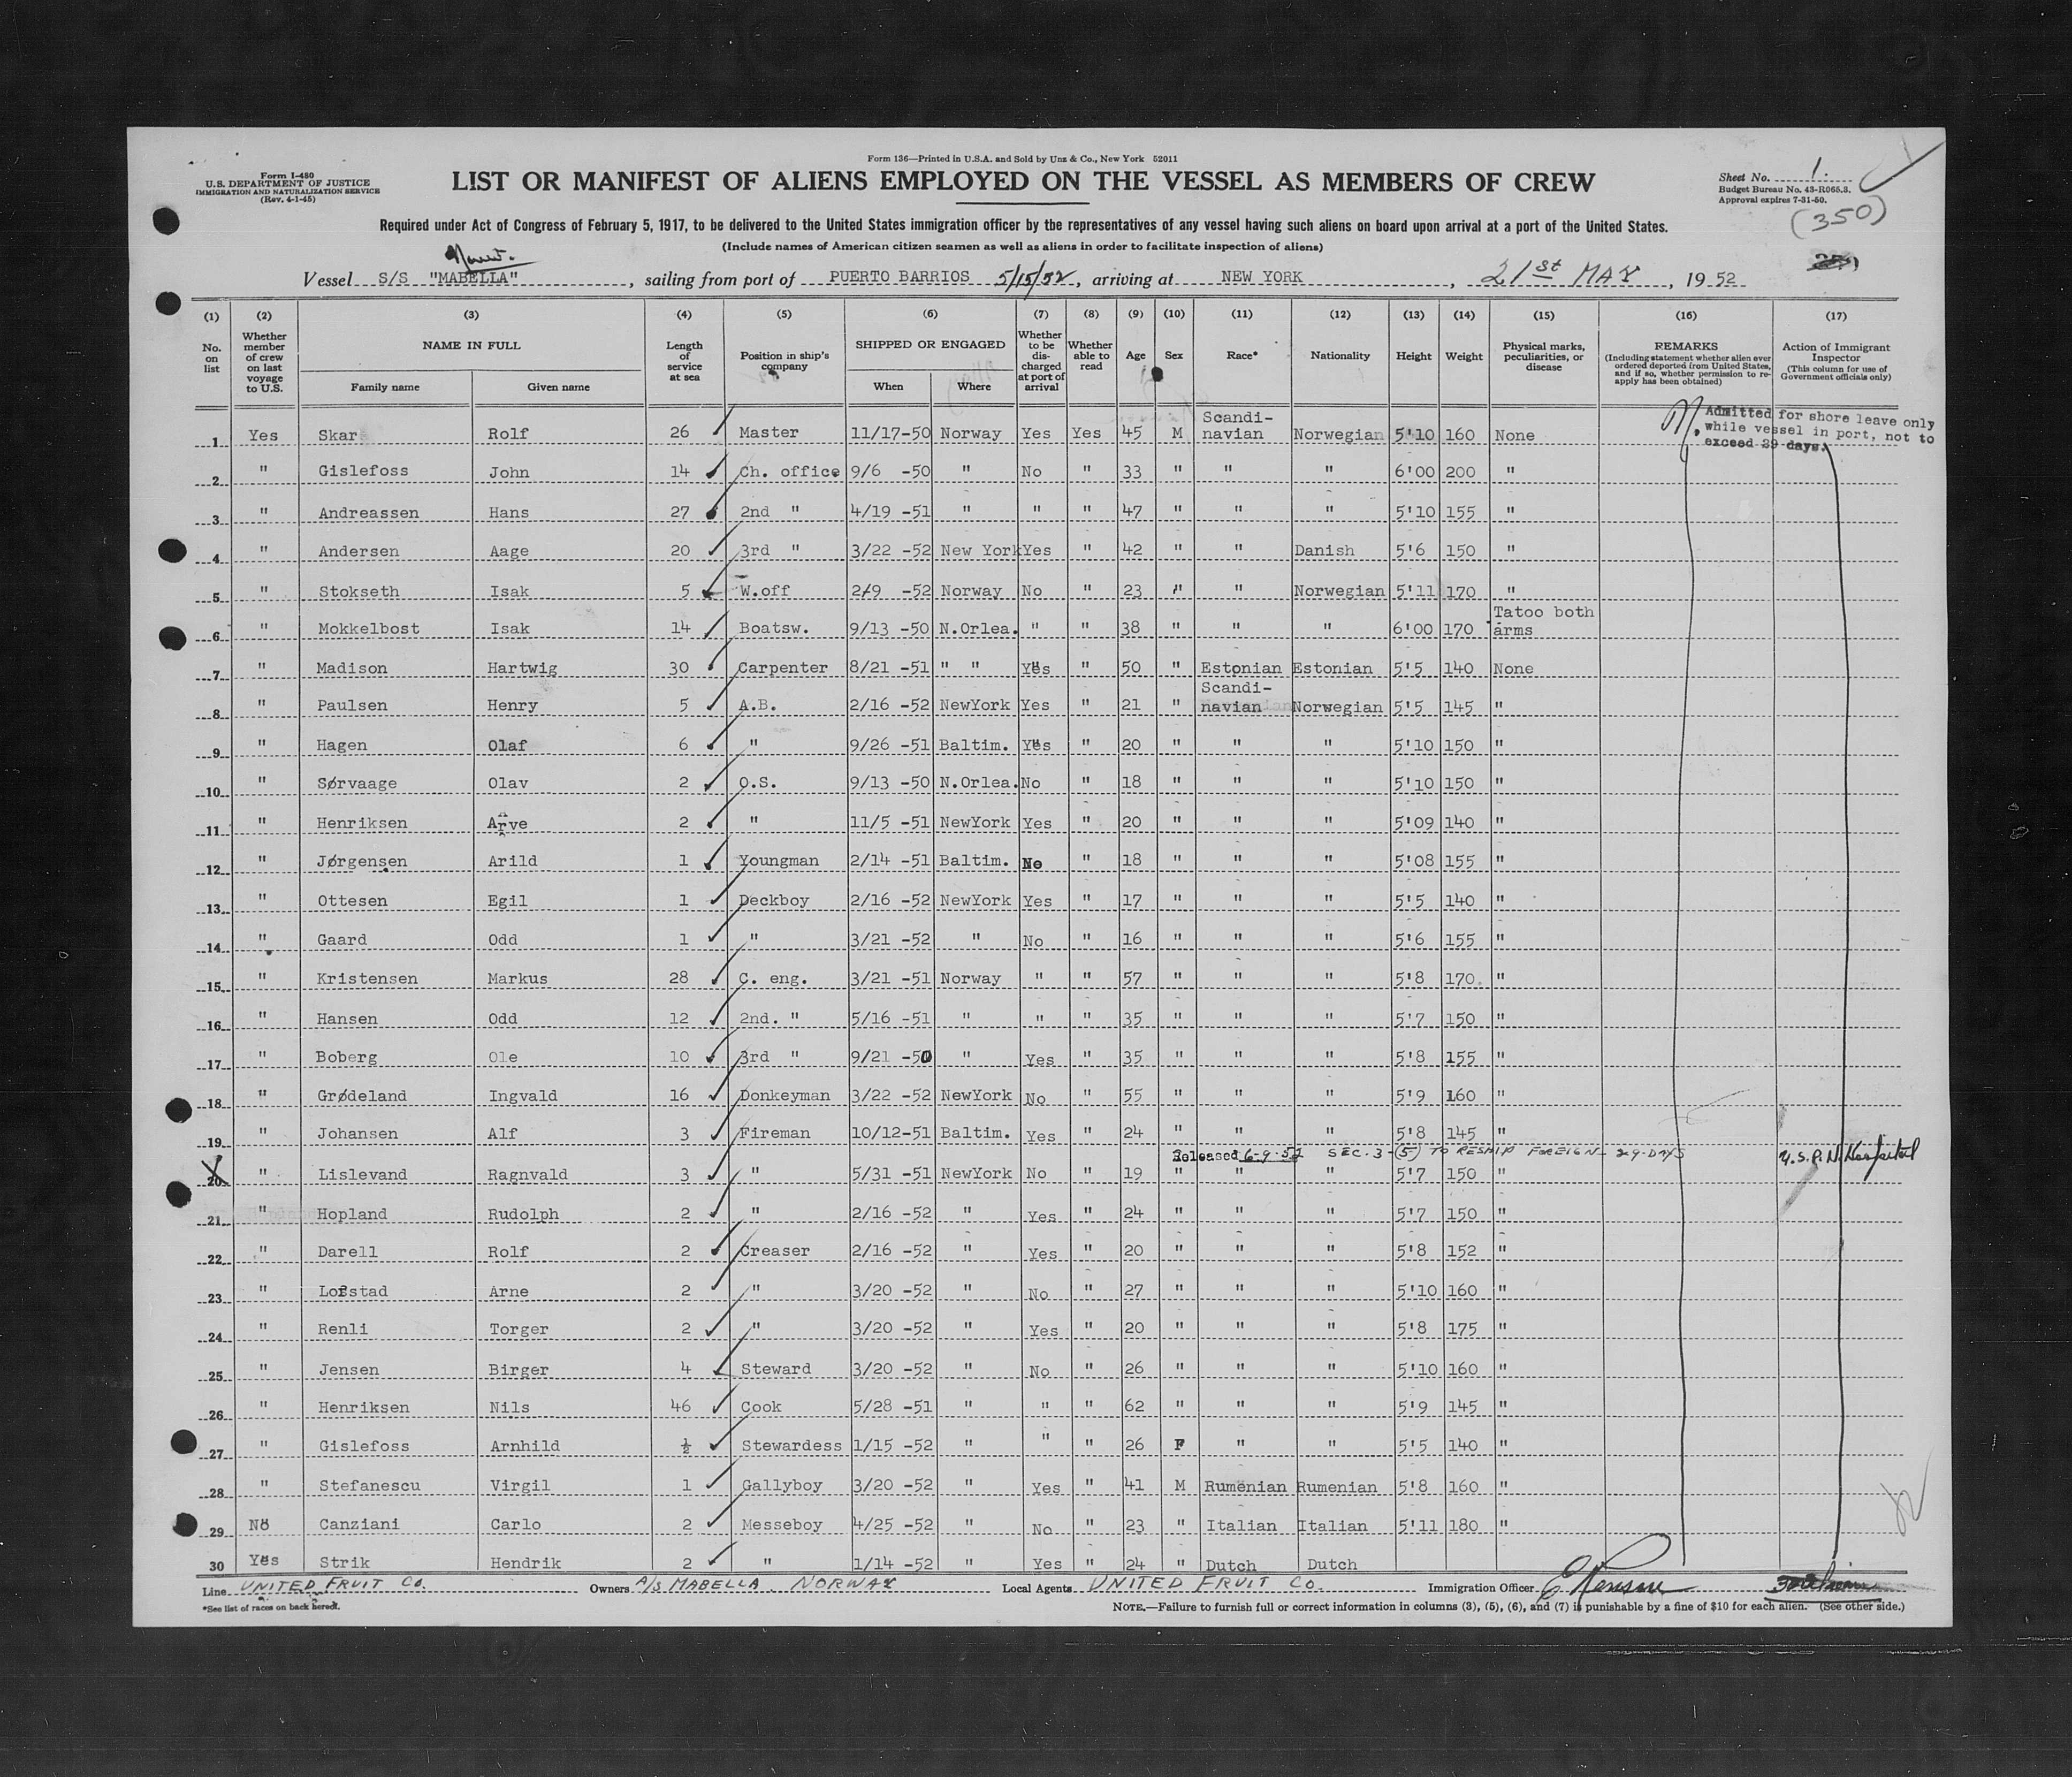 Form 136—Printed in U.S.A. and Sold by Unz & Co., New York 52011
Form I-480
U.S. DEPARTMENT OF JUSTICE
IMMIGRATION AND NATURALIZATION SERVICE
(Rev. 4-1-45)
LIST OR MANIFEST OF ALIENS EMPLOYED ON THE VESSEL AS MEMBERS OF CREW
Sheet No. 1.
Budget Bureau No. 43-R065.3.
Approval expires 7-31-50.
(350)
Required under Act of Congress of February 5, 1917, to be delivered to the United States immigration officer by the representatives of any vessel having such aliens on board upon arrival at a port of the United States.
(Include names of American citizen seamen as well as aliens in order to facilitate inspection of aliens)
Vessel S/S "MABELLA", sailing from port of PUERTO BARRIOS 5/15/52, arriving at NEW YORK, 21st MAY, 1952
(1) (2) (3) (4) (5) (6) (7) (8) (9) (10) (11) (12) (13) (14) (15) (16) (17)
No. on list
Whether member of crew on last voyage to U.S.
NAME IN FULL
Family name Given name
Length of service at sea
Position in ship's company
SHIPPED OR ENGAGED
When Where
Whether to be discharged at port of arrival
Whether able to read
Age Sex Race* Nationality Height Weight
Physical marks, peculiarities, or disease
REMARKS
(Including statement whether alien ever ordered deported from United States, and if so, whether permission to reapply has been obtained)
Action of Immigrant Inspector
(This column for use of Government officials only)
Admitted for shore leave only
while vessel in port, not to
exceed 29 days.
1 Yes Skar Rolf 26 Master 11/17-50 Norway Yes Yes 45 M Scandinavian Norwegian 5'10 160 None
2 " Gislefoss John 14 Ch. office 9/6 -50 " No " 33 " " " 6'00 200 "
3 " Andreassen Hans 27 2nd " 4/19 -51 " " " 47 " " " 5'10 155 "
4 " Andersen Aage 20 3rd " 3/22 -52 New York Yes " 42 " " Danish 5'6 150 "
5 " Stokseth Isak 5 W.off 2/9 -52 Norway No " 23 " " Norwegian 5'11 170 "
6 " Mokkelbost Isak 14 Boatsw. 9/13 -50 N.Orlea. " " 38 " " " 6'00 170 Tatoo both arms
7 " Madison Hartwig 30 Carpenter 8/21 -51 " " Yes " 50 " Estonian Estonian 5'5 140 None
8 " Paulsen Henry 5 A.B. 2/16 -52 NewYork Yes " 21 " Scandinavian Norwegian 5'5 145 "
9 " Hagen Olaf 6 " 9/26 -51 Baltim. Yes " 20 " " " 5'10 150 "
10 " Sørvaage Olav 2 O.S. 9/13 -50 N.Orlea. No " 18 " " " 5'10 150 "
11 " Henriksen Arve 2 " 11/5 -51 NewYork Yes " 20 " " " 5'09 140 "
12 " Jørgensen Arild 1 Youngman 2/14 -51 Baltim. No " 18 " " " 5'08 155 "
13 " Ottesen Egil 1 Deckboy 2/16 -52 NewYork Yes " 17 " " " 5'5 140 "
14 " Gaard Odd 1 " 3/21 -52 " No " 16 " " " 5'6 155 "
15 " Kristensen Markus 28 C. eng. 3/21 -51 Norway " " 57 " " " 5'8 170 "
16 " Hansen Odd 12 2nd. " 5/16 -51 " " " 35 " " " 5'7 150 "
17 " Boberg Ole 10 3rd " 9/21 -50 " Yes " 35 " " " 5'8 155 "
18 " Grødeland Ingvald 16 Donkeyman 3/22 -52 NewYork No " 55 " " " 5'9 160 "
19 " Johansen Alf 3 Fireman 10/12-51 Baltim. Yes " 24 " " " 5'8 145 "
Released 6-9-52 SEC. 3-(5) TO RESHIP FOREIGN 29-DAYS U.S.P.H. Hospital
20 " Lislevand Ragnvald 3 " 5/31 -51 NewYork No " 19 " " " 5'7 150 "
21 " Hopland Rudolph 2 " 2/16 -52 " Yes " 24 " " " 5'7 150 "
22 " Darell Rolf 2 Creaser 2/16 -52 " Yes " 20 " " " 5'8 152 "
23 " Lofstad Arne 2 " 3/20 -52 " No " 27 " " " 5'10 160 "
24 " Renli Torger 2 " 3/20 -52 " Yes " 20 " " " 5'8 175 "
25 " Jensen Birger 4 Steward 3/20 -52 " No " 26 " " " 5'10 160 "
26 " Henriksen Nils 46 Cook 5/28 -51 " " " 62 " " " 5'9 145 "
27 " Gislefoss Arnhild ½ Stewardess 1/15 -52 " " " 26 F " " 5'5 140 "
28 " Stefanescu Virgil 1 Gallyboy 3/20 -52 " Yes " 41 M Rumenian Rumenian 5'8 160 "
29 No Canziani Carlo 2 Messeboy 4/25 -52 " No " 23 " Italian Italian 5'11 180 "
30 Yes Strik Hendrik 2 " 1/14 -52 " Yes " 24 " Dutch Dutch
Line UNITED FRUIT Co. Owners A/S MABELLA. NORWAY Local Agents UNITED FRUIT CO. Immigration Officer
*See list of races on back hereof.
NOTE.—Failure to furnish full or correct information in columns (3), (5), (6), and (7) is punishable by a fine of $10 for each alien. (See other side.)